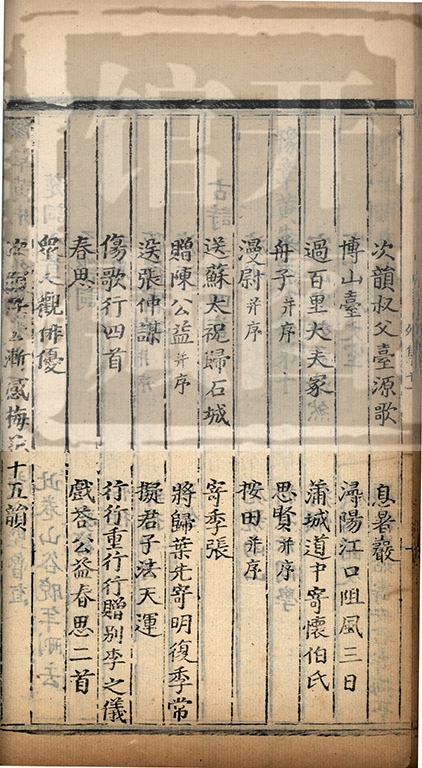 次韻叔父臺源歌 息暑巖
博山臺 潯陽江口阻風三日
過百里大夫冢 蒲城道中寄懷伯氏
舟子并序 思賢并序
漫尉并序 按田并序
送蘇太祝歸石城 寄季張
贈陳公益并序 將歸葉先寄明復季常
送張仲謀 擬君子法天運
傷歌行四首 行行重行行贈別李之儀
春思 戲答公益春思二首
眾人觀俳優
次韻 漸感梅 十五韻